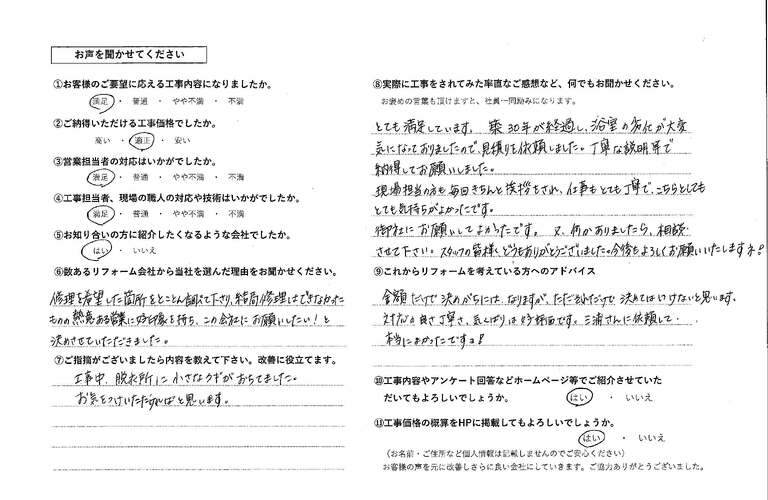 お声を聞かせてください
①お客様のご要望に応える工事内容になりましたか。
満足 ・ 普通 ・ やや不満 ・ 不満
②ご納得いただける工事価格でしたか。
高い ・ 適正 ・ 安い
③営業担当者の対応はいかがでしたか。
満足 ・ 普通 ・ やや不満 ・ 不満
④工事担当者、現場の職人の対応や技術はいかがでしたか。
満足 ・ 普通 ・ やや不満 ・ 不満
⑤お知り合いの方に紹介したくなるような会社でしたか。
はい ・ いいえ
⑥数あるリフォーム会社から当社を選んだ理由をお聞かせください。
修理を希望した箇所をとことん調べて下さり、結局修理はできなかった
ものの熱意ある営業に好印象を持ち、この会社にお願いしたい!と
決めさせていただきました。
⑦ご指摘がございましたら内容を教えて下さい。改善に役立てます。
工事中、脱衣所に小さなクギがおちてました。
お気をつけいただければと思います。
⑧実際に工事をされてみた率直なご感想など、何でもお聞かせください。
お褒めの言葉も頂けますと、社員一同励みになります。
とても満足しています。 築30年が経過し、浴室の劣化が大変
気になっておりましたので、見積りを依頼しました。丁寧な説明等で
納得してお願いしました。
現場担当の方も毎回きちんと挨拶をされ、仕事もとても丁寧で、こちらとしても
とても気持ちがよかったです。
御社にお願いしてよかったです。 又、何かありましたら、相談
させて下さい。スタッフの皆様、どうもありがとうございました。今後もよろしくお願いいたします!
⑨これからリフォームを考えている方へのアドバイス
金額だけで決めがちには、なりますが、ただそれだけで決めてはいけないと思います。
対応の良さ丁寧さ、気くばりは好評価です。三浦さんに依頼して・
本当によかったですよ!
⑩工事内容やアンケート回答などホームページ等でご紹介させていた
だいてもよろしいでしょうか。 はい ・ いいえ
⑪工事価格の概算をHPに掲載してもよろしいでしょうか。
はい ・ いいえ
(お名前・ご住所など個人情報は記載しませんのでご安心ください)
お客様の声を元に改善しさらに良い会社にしていきます。ご協力ありがとうございました。